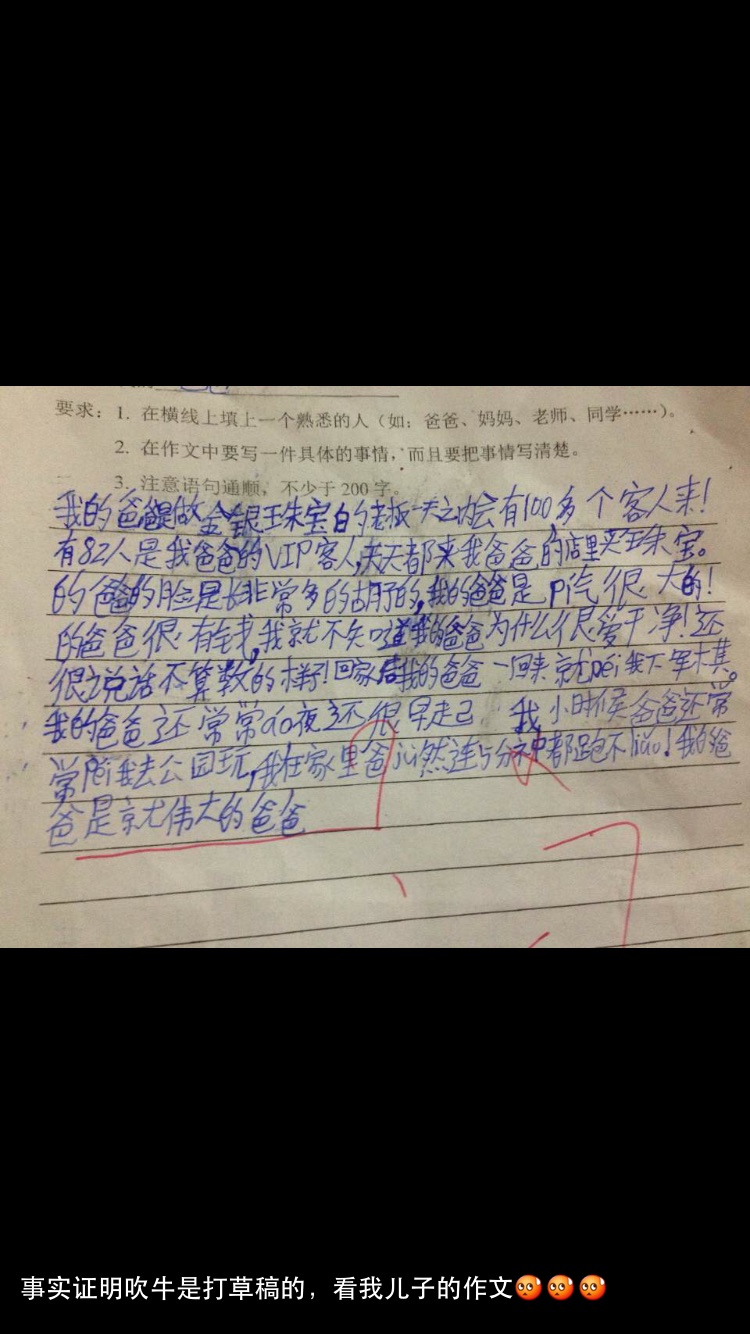 要求：1. 在横线上填上一个熟悉的人（如：爸爸、妈妈、老师、同学……）。
2. 在作文中要写一件具体的事情，而且要把事情写清楚。
3. 注意语句通顺，不少于 200 字。
我的爸爸是做金银珠宝白的老板一天之内会有100多个客人来！
有82人是我爸爸的VIP客人,天天都来我爸爸的店里买珠宝。
的爸爸的脸是长非常多的胡子的,我的爸爸是pí气很大的！
的爸爸很有钱,我就不知道我的爸爸为什么很爱干净！还
很说话不算数的样子！回家后我的爸爸一回来就péi我下军棋。
我的爸爸还常常áo夜还很早走己 我小时候爸爸还常
常陪我去公园玩,我在家里爸jū然连5分都跑不liǎo！我的爸
爸是京尤伟大的爸爸
事实证明吹牛是打草稿的，看我儿子的作文